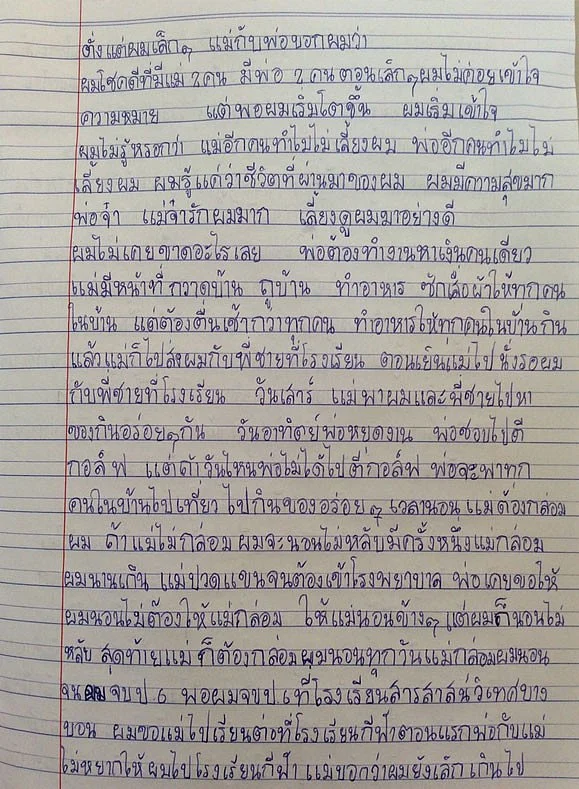 ตั้งแต่ผมเล็กๆ แม่กับพ่อบอกผมว่า
ผมโชคดีที่มีแม่ 2 คน มีพ่อ 2 คน ตอนเล็กๆ ผมไม่ค่อยเข้าใจ
ความหมาย แต่พอผมเริ่มโตขึ้น ผมเริ่มเข้าใจ
ผมไม่รู้หรอกว่า แม่อีกคนทำไมไม่เลี้ยงผม พ่ออีกคนทำไมไม่
เลี้ยงผม ผมรู้แค่ว่าชีวิตที่ผ่านมาของผม ผมมีความสุขมาก
พ่อจ๋า แม่จ๋ารักผมมาก เลี้ยงดูผมมาอย่างดี
ผมไม่เคยขาดอะไรเลย พ่อต้องทำงานหาเงินคนเดียว
แม่มีหน้าที่ กวาดบ้าน ถูบ้าน ทำอาหาร ซักเสื้อผ้าให้ทุกคน
ในบ้าน แต่ต้องตื่นเช้ากว่าทุกคน ทำอาหารให้ทุกคนในบ้านกิน
แล้วแม่ก็ไปส่งผมกับพี่ชายที่โรงเรียน ตอนเย็นแม่ไปนั่งรอผม
กับพี่ชายที่โรงเรียน วันเสาร์ แม่พาผมและพี่ชายไปหา
ของกินอร่อยๆกัน วันอาทิตย์พ่อหยุดงาน พ่อชอบไปตี
กอล์ฟ แต่ถ้าวันไหนพ่อไม่ได้ไปตีกอล์ฟ พ่อจะพาทุก
คนในบ้านไปเที่ยว ไปกินของอร่อย ๆ เวลานอน แม่ต้องกล่อม
ผม ถ้าแม่ไม่กล่อม ผมจะนอนไม่หลับมีครั้งหนึ่งแม่กล่อม
ผมนานเกิน แม่ปวดแขนจนต้องเข้าโรงพยาบาล พ่อเคยขอให้
ผมนอนไม่ต้องให้แม่กล่อม ให้แม่นอนข้างๆ แต่ผมก็นอนไม่
หลับ สุดท้ายแม่ ก็ต้องกล่อมผมนอนทุกวันแม่กล่อมผมนอน
จนผมจบป.6 พอผมจบป.6ที่โรงเรียนสารสาสน์วิเทศบาง
บอน ผมขอแม่ไปเรียนต่อที่โรงเรียนกีฬาตอนแรกพ่อกับแม่
ไม่หยากให้ผมไปโรงเรียนกีฬา แม่บอกว่าผมยังเล็กเกินไป